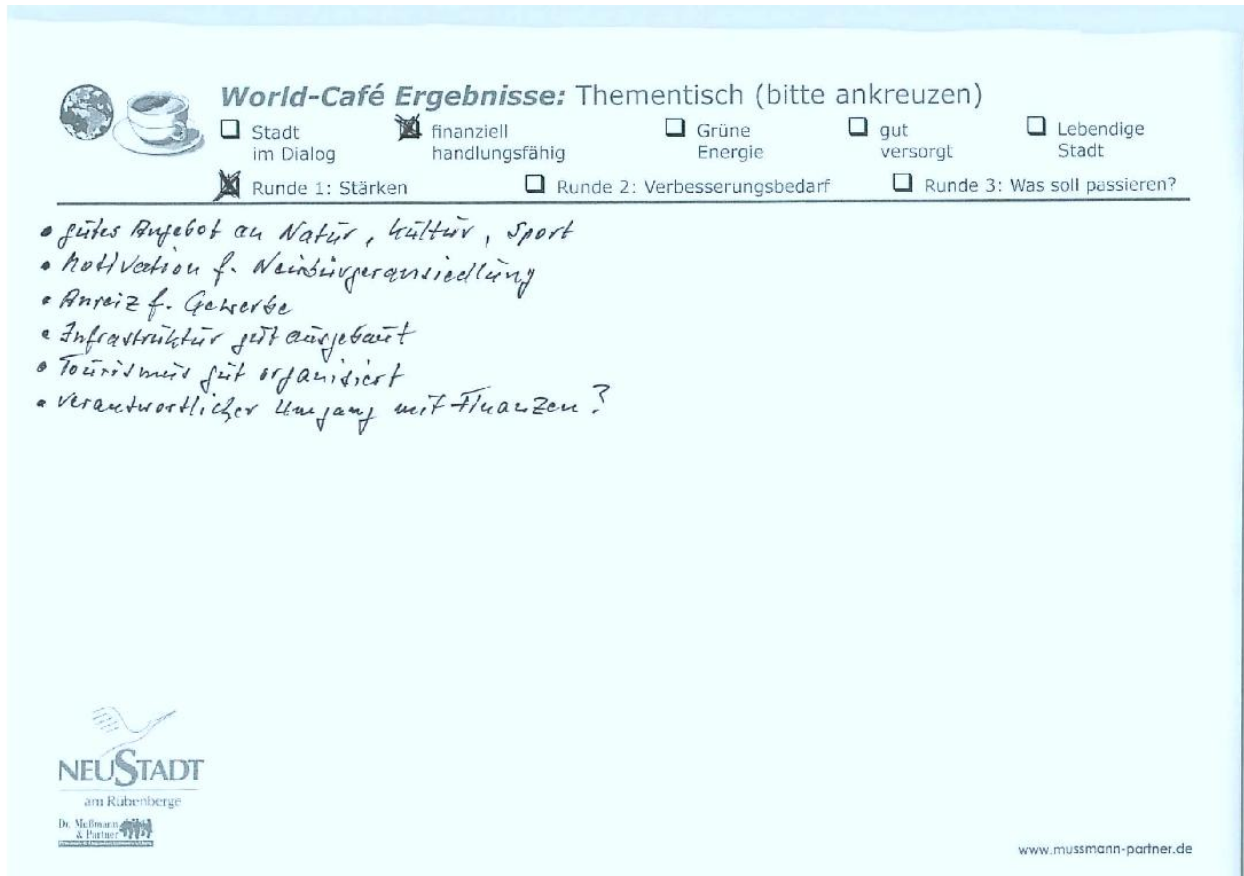 World-Café Ergebnisse: Thementisch (bitte ankreuzen)
Stadt im Dialog
finanziell handlungsfähig
Grüne Energie
gut versorgt
Lebendige Stadt
Runde 1: Stärken
Runde 2: Verbesserungsbedarf
Runde 3: Was soll passieren?
• gutes Angebot an Natur, Kultur, Sport
• Motivation f. Neubürgeransiedlung
• Anreiz f. Gewerbe
• Infrastruktur gut ausgebaut
• Tourismus gut organisiert
• verantwortlicher Umgang mit Finanzen?
NEUSTADT
am Rübenberge
Dr. Mußmann
& Partner
www.mussmann-partner.de